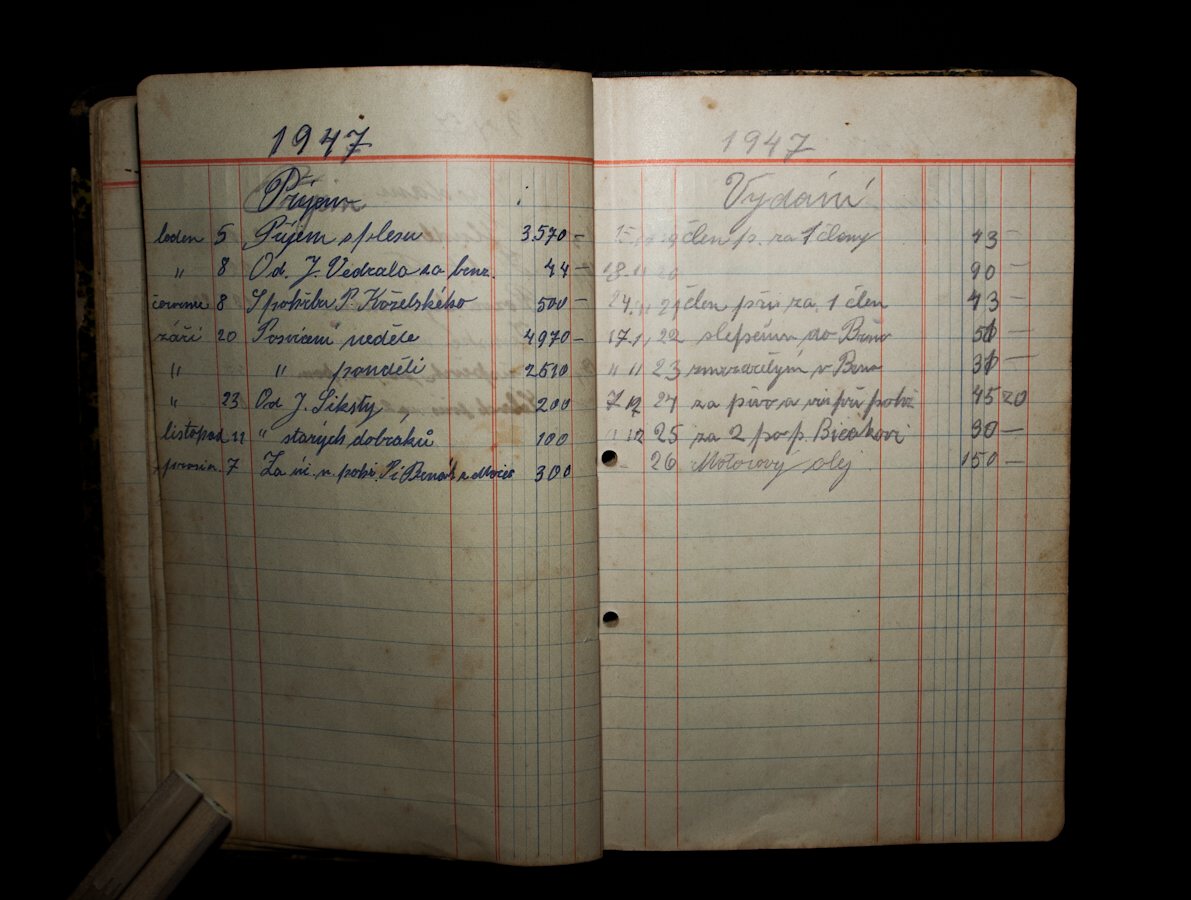 1947
Příjem
leden 5 Příjem s plesu 3.570 –
" 8 Od. J. Vedrala za benz. 44 –
červenec 8 S pohřbu P. Kozelského 500 –
září 20 Posvícení neděle 4970 –
" " pondělí 2510
" 23 Od J. Siksty 200
listopad 11 " starých dobráků 100
prosin. 7 Za 300
1947
Vydání
člen p. za 1 členy 43 –
18. 11 20 90 –
24. 11 21 člen přís za 1 člen 43 –
17 11 22 do Brna
" " 23 v Brně
7 12 24 za pivo a při pohř 45 20
" 12 25 za 2 po p. 30 –
26 Motorový olej 150 –